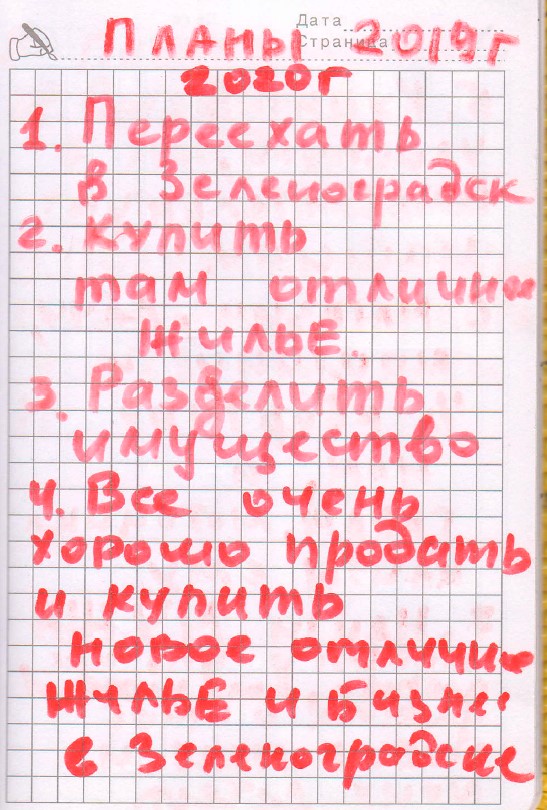 Дата
Страница
Планы 2019г
2020г
1. Переехать
в Зеленоградск
2. Купить
там отлични
жилье
3. Разделить
имущество
4. Все очень
хорошо продать
и купить
новое отлични
жилье и бизнес
в Зеленоградске